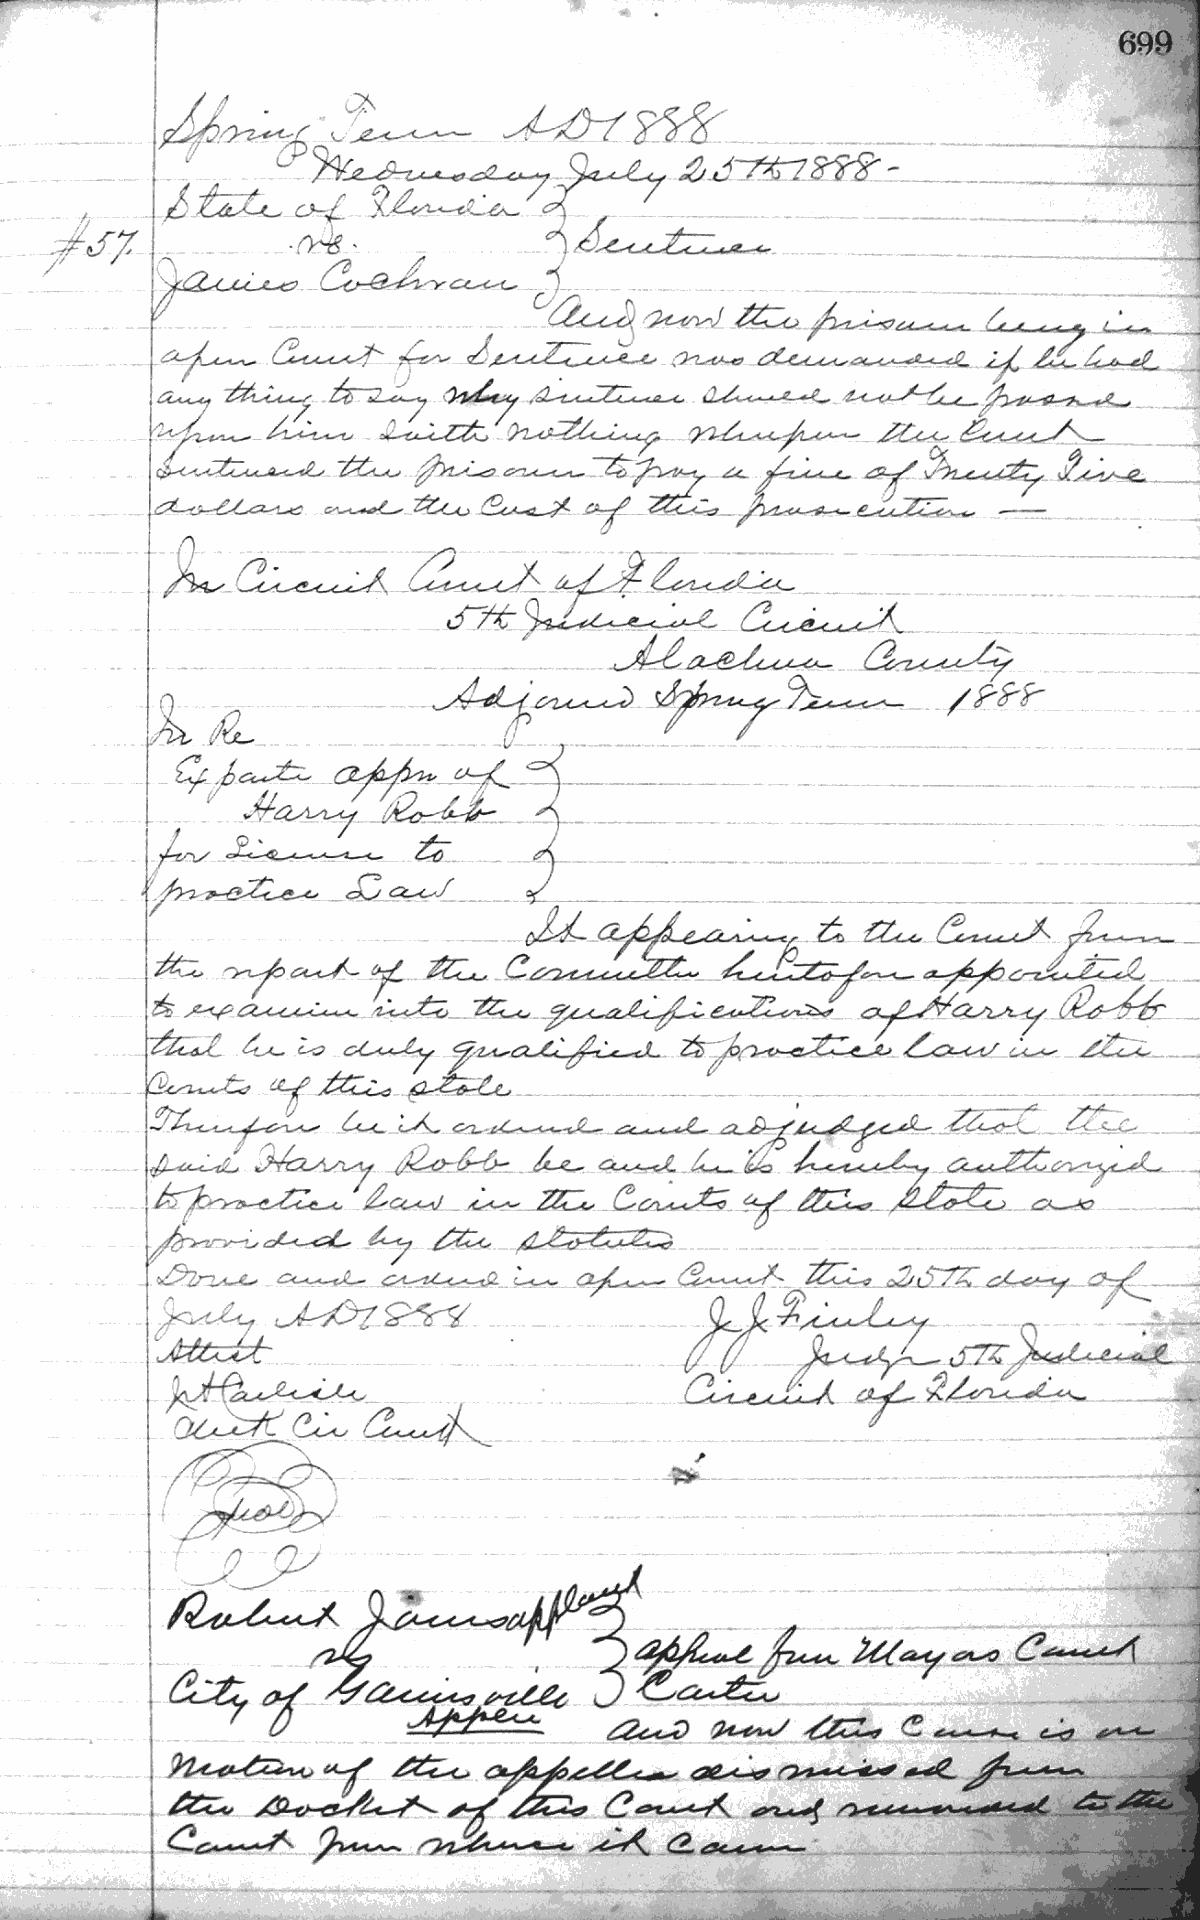 699
Spring Term AD 1888
Wednesday July 25th 1888 -
State of Florida
#57. vs. Sentence
James Cochran
And now the prisoner being in
open Court for Sentence was demanded if he had
any thing to say why sentence should not be passed
upon him saith nothing whereupon the Court
sentenced the prisoner to pay a fine of Twenty Five
dollars and the Cost of this prosecution —
In Circuit Court of Florida
5th Judicial Circuit
Alachua County
Adjorned Spring Term 1888
In Re
Exparte appn of
Harry Robb
for License to
practice Law
It appearing to the Court from
the report of the Committee heretofore appointed
to examine into the qualifications of Harry Robb
that he is duly qualified to practice law in the
Courts of this state
Therefore be it ordered and adjudged that the
said Harry Robb be and he is hereby authorized
to practice law in the Courts of this State as
provided by the statutes
Done and ordered in open Court this 25th day of
July AD 1888 J J Finley
Attest Judge 5th Judicial
Carlisle Circuit of Florida
Clerk Cir Court
Robert James applant
vs appeal from Mayors Court
City of Gainsville
Appee And now this Cause is on
motion of the appellee dismissed from
the Docket of this Court and remanded to the
Court from whence it came